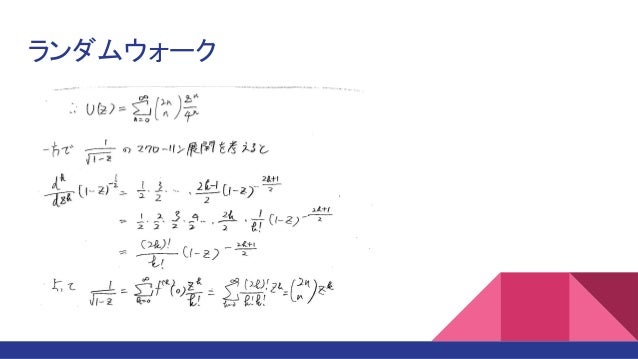 ランダムウォーク
∴ U(z) = Σ_{n=0}^{∞} (2n n) z^n/4^n
一方で 1/√(1-z) のマクローリン展開を考えると
d^k/dz^k (1-z)^{-1/2} = 1/2 · 3/2 · ⋯ · (2k-1)/2 (1-z)^{-(2k+1)/2}
= 1/2 · 2/2 · 3/2 · 4/2 ⋯ · 2k/2 · 1/k! (1-z)^{-(2k+1)/2}
= (2k)!/k! (1-z)^{-(2k+1)/2}
よって 1/√(1-z) = Σ_{k=0}^{∞} f^{(k)}(0) z^k/k! = Σ_{k=0}^{∞} (2k)!/k!k! z^k = (2n n) z^k